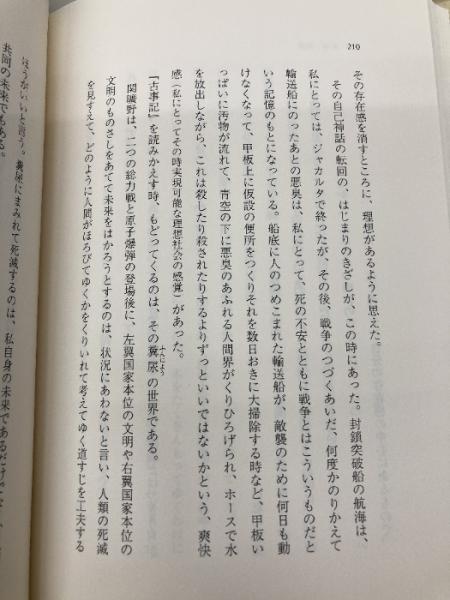 210
その存在感を消すところに、理想があるように思えた。
その自己神話の転回の、はじまりのきざしが、この時にあった。封鎖突破船の航海は、
私にとっては、ジャカルタで終ったが、その後、戦争のつづくあいだ、何度かのりかえて
輸送船にのったあとの悪臭は、私にとって、死の不安とともに戦争とはこういうものだと
いう記憶のもとになっている。船底に人のつめこまれた輸送船が、敵襲のために何日も動
けなくなって、甲板上に仮設の便所をつくりそれを数日おきに大掃除する時など、甲板い
っぱいに汚物が流れて、青空の下に悪臭のあふれる人間界がくりひろげられ、ホースで水
を放出しながら、これは殺したり殺されたりするよりずっといいではないかという、爽快
感（私にとってその時実現可能な理想社会の感覚）があった。
『古事記』を読みかえす時、もどってくるのは、その糞尿の世界である。
関曠野は、二つの総力戦と原子爆弾の登場後に、左翼国家本位の文明や右翼国家本位の
文明のものさしをあてて未来をはかろうとするのは、状況にあわないと言い、人類の死滅
を見すえて、どのように人間がほろびてゆくかをくりいれて考えてゆく道すじを工夫する
ほうがいいと言う。糞尿にまみれて死滅するのは、私自身の未来であるだけ
共同の未来でもある。